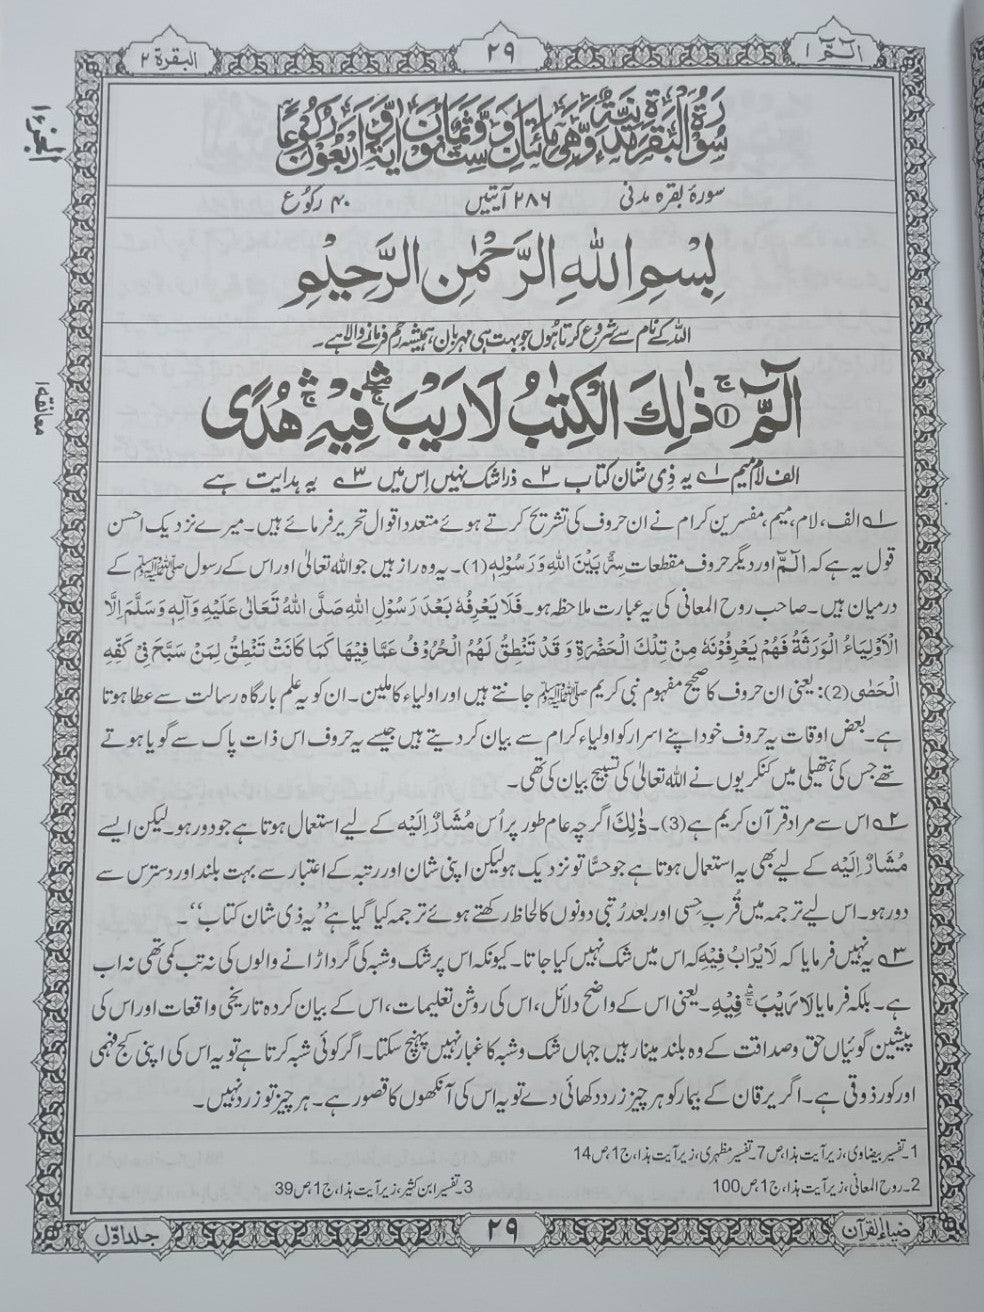 الٓمّٓ ۱
۲۹
البقرة ۲
الجزء ۱
سُوْرَةُ الْبَقَرَةِ مَدَنِيَّةٌ وَّهِيَ مِائَتَانِ وَسِتٌّ وَّثَمَانُوْنَ اٰيَةً وَّاَرْبَعُوْنَ رُكُوْعًا
سورۂ بقرہ مدنی ۲۸۶ آیتیں ۴۰ رکوع
بِسْمِ اللّٰهِ الرَّحْمٰنِ الرَّحِيْمِ
اللہ کے نام سے شروع کرتا ہوں جو بہت ہی مہربان، ہمیشہ رحم فرمانے والا ہے۔
الٓمّٓ ۚ﴿۱﴾ ذٰلِكَ الْكِتٰبُ لَا رَيْبَ ۛۚ فِيْهِ ۛۚ هُدًى
معانقة ۱
الف لام میم ۱ یہ ذی شان کتاب ۲ ذرا شک نہیں اس میں ۳ یہ ہدایت ہے
۱ الف، لام، میم، مفسرین کرام نے ان حروف کی تشریح کرتے ہوئے متعدد اقوال تحریر فرمائے ہیں۔ میرے نزدیک احسن
قول یہ ہے کہ الٓمّٓ اور دیگر حروف مقطعات سِرٌّ بَيْنَ اللّٰهِ وَرَسُوْلِهٖ(1)۔ یہ وہ راز ہیں جو اللہ تعالیٰ اور اس کے رسول ﷺ کے
درمیان ہیں۔ صاحب روح المعانی کی یہ عبارت ملاحظہ ہو۔ فَلَا يَعْرِفُهٗ بَعْدَ رَسُوْلِ اللّٰهِ صَلَّى اللّٰهُ تَعَالٰى عَلَيْهِ وَاٰلِهٖ وَسَلَّمَ اِلَّا
الْاَوْلِيَاءُ الْوَرَثَةُ فَهُمْ يَعْرِفُوْنَهٗ مِنْ تِلْكَ الْحَضْرَةِ وَ قَدْ تَنْطِقُ لَهُمُ الْحُرُوْفُ عَمَّا فِيْهَا كَمَا كَانَتْ تَنْطِقُ لِمَنْ سَبَّحَ فِيْ كَفِّهٖ
الْحَصٰى(2): یعنی ان حروف کا صحیح مفہوم نبی کریم ﷺ جانتے ہیں اور اولیاء کاملین۔ ان کو یہ علم بارگاہ رسالت سے عطا ہوتا
ہے۔ بعض اوقات یہ حروف خود اپنے اسرار کو اولیاء کرام سے بیان کر دیتے ہیں جیسے یہ حروف اس ذات پاک سے گویا ہوتے
تھے جس کی ہتھیلی میں کنکریوں نے اللہ تعالیٰ کی تسبیح بیان کی تھی۔
۲ اس سے مراد قرآن کریم ہے(3)۔ ذٰلِكَ اگرچہ عام طور پر اُس مُشَارٌ اِلَيْهِ کے لیے استعمال ہوتا ہے جو دور ہو۔ لیکن ایسے
مُشَارٌ اِلَيْهِ کے لیے بھی یہ استعمال ہوتا ہے جو حسّاً تو نزدیک ہو لیکن اپنی شان اور رتبہ کے اعتبار سے بہت بلند اور دسترس سے
دور ہو۔ اس لیے ترجمہ میں قُرب حِسی اور بعد رُتبی دونوں کا لحاظ رکھتے ہوئے ترجمہ کیا گیا ہے ’’یہ ذی شان کتاب‘‘۔
۳ یہ نہیں فرمایا کہ لَا يُرَابُ فِيْهِ کہ اس میں شک نہیں کیا جاتا۔ کیونکہ اس پر شک و شبہ کی گرد اڑانے والوں کی نہ تب کمی تھی نہ اب
ہے۔ بلکہ فرمایا لَا رَيْبَ ۛۚ فِيْهِ۔ یعنی اس کے واضح دلائل، اس کی روشن تعلیمات، اس کے بیان کردہ تاریخی واقعات اور اس کی
پیشین گوئیاں حق و صداقت کے وہ بلند مینار ہیں جہاں شک و شبہ کا غبار نہیں پہنچ سکتا۔ اگر کوئی شبہ کرتا ہے تو یہ اس کی اپنی کج فہمی
اور کور ذوقی ہے۔ اگر یرقان کے بیمار کو ہر چیز زرد دکھائی دے تو یہ اس کی آنکھوں کا قصور ہے۔ ہر چیز تو زرد نہیں۔
1۔ تفسیر بیضاوی، زیر آیت ہذا، ص7۔ تفسیر مظہری، زیر آیت ہذا، ج1، ص14
2۔ روح المعانی، زیر آیت ہذا، ج1، ص100 3۔ تفسیر ابن کثیر، زیر آیت ہذا، ج1، ص39
ضیاء القرآن
۲۹
جلد اوّل